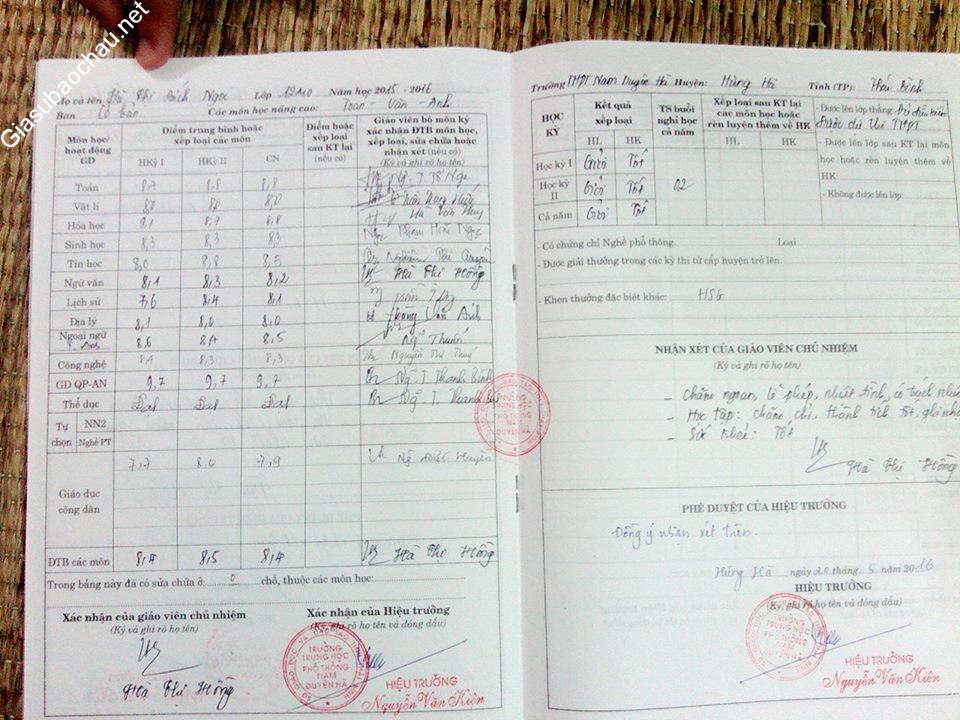 Giasubaochau.net
Họ và tên Hà Thị Bích Ngọc Lớp 12A10 Năm học 2015 - 2016
Ban Cơ bản Các môn học nâng cao: Toán - Văn - Anh
Môn học/ hoạt động GD
Điểm trung bình hoặc xếp loại các môn
HKỳ I HKỳ II CN
Điểm hoặc xếp loại sau KT lại (nếu có)
Giáo viên bộ môn ký xác nhận ĐTB môn học, xếp loại, sửa chữa hoặc nhận xét (nếu có)
(Ký và ghi rõ họ tên)
Toán 8,7 8,8 8,8
Vật lí 8,0 8,0 8,0
Hóa học 9,1 8,7 8,8 Hà Văn Huy
Sinh học 8,3 8,3 8,3 Phạm Hồng Ngọc
Tin học 8,0 8,8 8,5
Ngữ văn 8,1 8,3 8,2 Hà Thị Hồng
Lịch sử 7,6 8,4 8,1
Địa lý 8,1 8,0 8,0
Ngoại ngữ Anh 8,6 8,4 8,5 Ngô Thuấn
Công nghệ 8,4 8,3 8,3 Nguyễn Thị Thuý
GD QP-AN 9,7 9,7 9,7 Ng. T. Thanh Bình
Thể dục Đạt Đạt Đạt Ng. T. Thanh
Tự chọn NN2
Nghề PT
Giáo dục công dân 7,7 8,0 7,9
ĐTB các môn 8,4 8,5 8,4 Hà Thị Hồng
Trong bảng này đã có sửa chữa ở: 0 chỗ, thuộc các môn học:
Xác nhận của giáo viên chủ nhiệm
(Ký và ghi rõ họ tên)
Hà Thị Hồng
Xác nhận của Hiệu trưởng
(Ký, ghi rõ họ tên và đóng dấu)
TRƯỜNG TRUNG HỌC PHỔ THÔNG NAM DUYÊN HÀ
HIỆU TRƯỞNG
Nguyễn Văn Kiên
Trường THPT Nam Duyên Hà Huyện: Hưng Hà Tỉnh (TP): Thái Bình
HỌC KỲ
Kết quả xếp loại
HL HK
TS buổi nghỉ học cả năm
Xếp loại sau KT lại các môn học hoặc rèn luyện thêm về HK
HL HK
Học kỳ I Giỏi Tốt
Học kỳ II Giỏi Tốt 02
Cả năm Giỏi Tốt
- Được lên lớp thẳng: Đủ điều kiện
Được dự thi THPT
- Được lên lớp sau KT lại môn học hoặc rèn luyện thêm về HK:
- Không được lên lớp:
- Có chứng chỉ Nghề phổ thông: Loại:
- Được giải thưởng trong các kỳ thi từ cấp huyện trở lên:
- Khen thưởng đặc biệt khác: HSG
NHẬN XÉT CỦA GIÁO VIÊN CHỦ NHIỆM
(Ký và ghi rõ họ tên)
- Chăm ngoan, lễ phép, nhiệt tình, có trách nhiệm
- Học tập: chăm chỉ, thành tích tốt,
- Sức khỏe: Tốt
Hà Thị Hồng
PHÊ DUYỆT CỦA HIỆU TRƯỞNG
Đồng ý nhận xét trên.
Hưng Hà ngày 20 tháng 5 năm 2016
HIỆU TRƯỞNG
(Ký, ghi rõ họ tên và đóng dấu)
TRƯỜNG TRUNG HỌC PHỔ THÔNG NAM DUYÊN HÀ
HIỆU TRƯỞNG
Nguyễn Văn Kiên